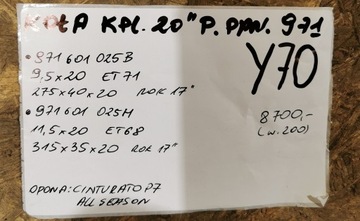 KOŁA KPL. 20" P. PAN. 971
Y70
• 971 601 025B
9,5x20 ET71
275x40x20 ROK 17"
• 971 601 025H
11,5x20 ET68
315x35x20 ROK 17"
8700,-
(w.200)
OPONA: CINTURATO P7
ALL SEASON